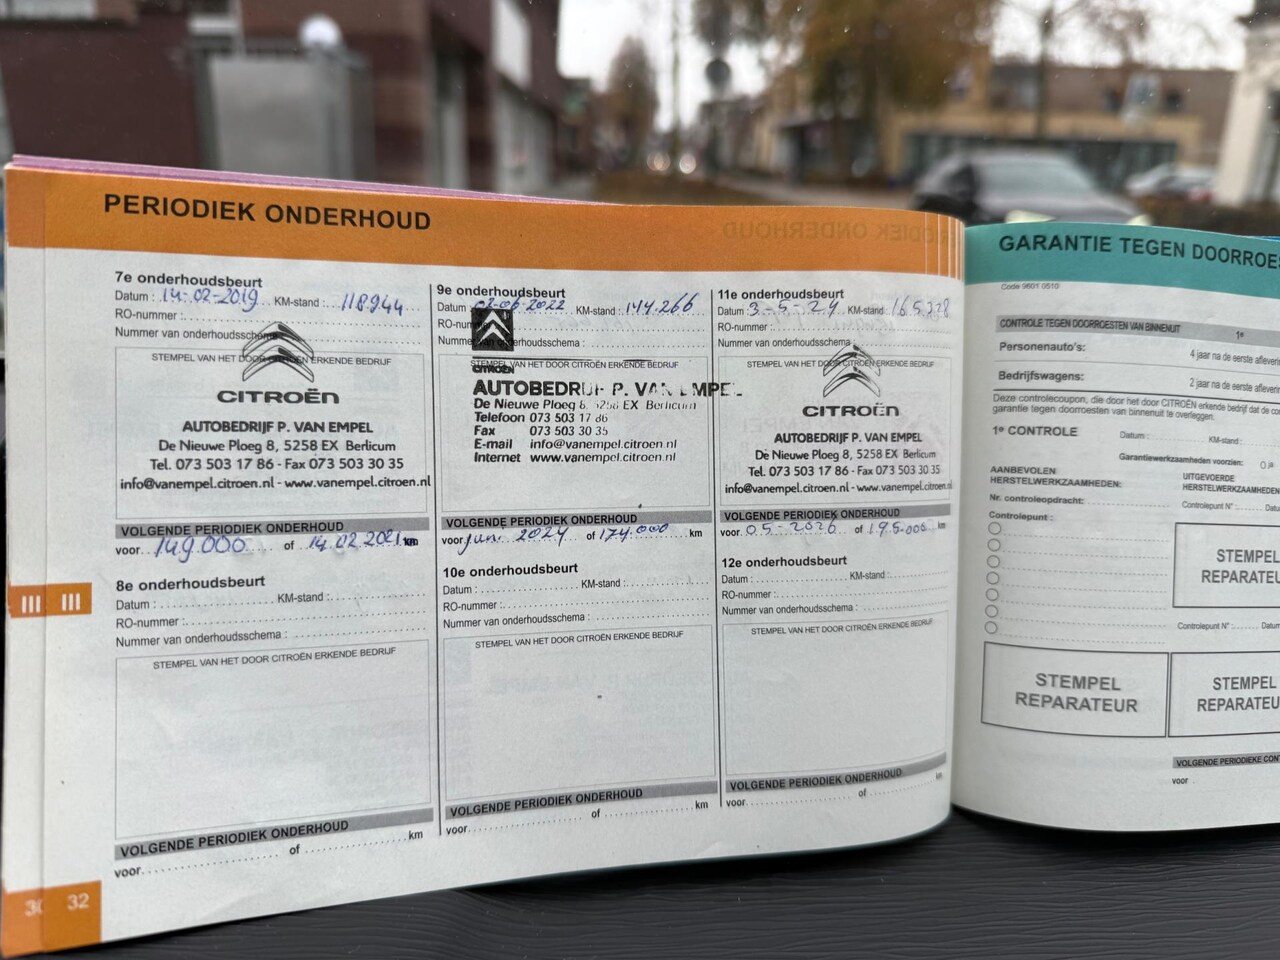 PERIODIEK ONDERHOUD
7e onderhoudsbeurt
Datum : 14-02-2019 KM-stand : 118944
RO-nummer :
Nummer van onderhoudsschema
STEMPEL VAN HET DOOR CITROËN ERKENDE BEDRIJF
CITROËN
AUTOBEDRIJF P. VAN EMPEL
De Nieuwe Ploeg 8, 5258 EX Berlicum
Tel. 073 503 17 86 - Fax 073 503 30 35
info@vanempel.citroen.nl - www.vanempel.citroen.nl
VOLGENDE PERIODIEK ONDERHOUD
voor 149.000 of 14.02.2021 km
8e onderhoudsbeurt
Datum : KM-stand :
RO-nummer :
Nummer van onderhoudsschema :
STEMPEL VAN HET DOOR CITROËN ERKENDE BEDRIJF
VOLGENDE PERIODIEK ONDERHOUD
voor of km
9e onderhoudsbeurt
Datum : 02-06-2022 KM-stand : 144.266
RO-nummer
Nummer van onderhoudsschema :
STEMPEL VAN HET DOOR CITROËN ERKENDE BEDRIJF
CITROËN
AUTOBEDRIJF P. VAN EMPEL
De Nieuwe Ploeg 8, 5258 EX Berlicum
Telefoon 073 503 17 86
Fax 073 503 30 35
E-mail info@vanempel.citroen.nl
Internet www.vanempel.citroen.nl
VOLGENDE PERIODIEK ONDERHOUD
voor jun. 2024 of 174.000 km
10e onderhoudsbeurt
Datum : KM-stand :
RO-nummer :
Nummer van onderhoudsschema :
STEMPEL VAN HET DOOR CITROËN ERKENDE BEDRIJF
VOLGENDE PERIODIEK ONDERHOUD
voor of km
11e onderhoudsbeurt
Datum : 3-5-24 KM-stand : 165328
RO-nummer :
Nummer van onderhoudsschema :
STEMPEL VAN HET DOOR CITROËN ERKENDE BEDRIJF
CITROËN
AUTOBEDRIJF P. VAN EMPEL
De Nieuwe Ploeg 8, 5258 EX Berlicum
Tel. 073 503 17 86 - Fax 073 503 30 35
info@vanempel.citroen.nl - www.vanempel.citroen.nl
VOLGENDE PERIODIEK ONDERHOUD
voor 05-2026 of 195.000 km
12e onderhoudsbeurt
Datum : KM-stand :
RO-nummer :
Nummer van onderhoudsschema :
STEMPEL VAN HET DOOR CITROËN ERKENDE BEDRIJF
VOLGENDE PERIODIEK ONDERHOUD
voor of km
32
GARANTIE TEGEN DOORROES
Code 9601 0510
CONTROLE TEGEN DOORROESTEN VAN BINNENUIT 1e
Personenauto's: 4 jaar na de eerste aflevering
Bedrijfswagens: 2 jaar na de eerste aflevering
Deze controlecoupon, die door het door CITROËN erkende bedrijf dat de co
garantie tegen doorroesten van binnenuit te overleggen.
1e CONTROLE
Datum : KM-stand :
Garantiewerkzaamheden voorzien: O ja
AANBEVOLEN HERSTELWERKZAAMHEDEN:
UITGEVOERDE HERSTELWERKZAAMHEDEN
Nr. controleopdracht:
Controlepunt N° : Datum
Controlepunt :
STEMPEL
REPARATEU
Controlepunt N° : Datum
STEMPEL
REPARATEUR
STEMPEL
REPARATEU
VOLGENDE PERIODIEKE CON
voor